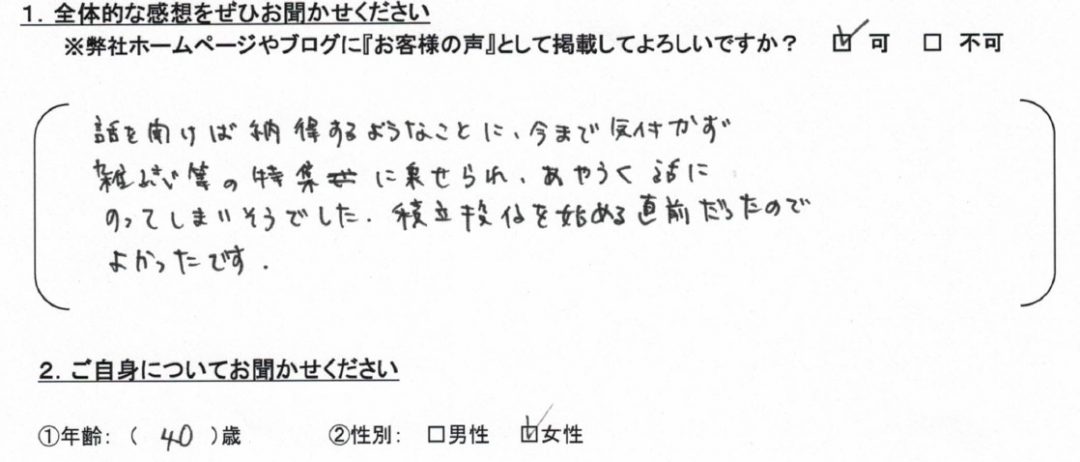 1．全体的な感想をぜひお聞かせください
※弊社ホームページやブログに『お客様の声』として掲載してよろしいですか？ ☑ 可 □ 不可
話を聞けば納得するようなことに、今まで気付かず
雑誌等の特集に乗せられ、あやうく話に
のってしまいそうでした．積立投信を始める直前だったので
よかったです．
2．ご自身についてお聞かせください
①年齢：（ 40 ）歳 ②性別： □男性 ☑女性